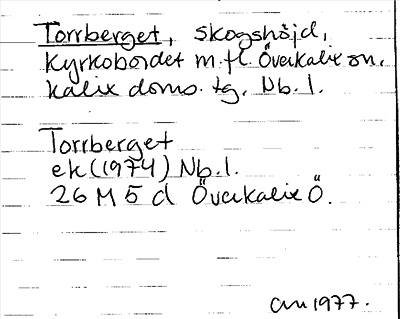 Torrberget, skogshöjd,
Kyrkobordet m.fl. Överkalix sn.
Kalix doms. tg. Nb. l.
Torrberget
ek (1974) Nb. l.
26 M 5 d Överkalix Ö.
1977.